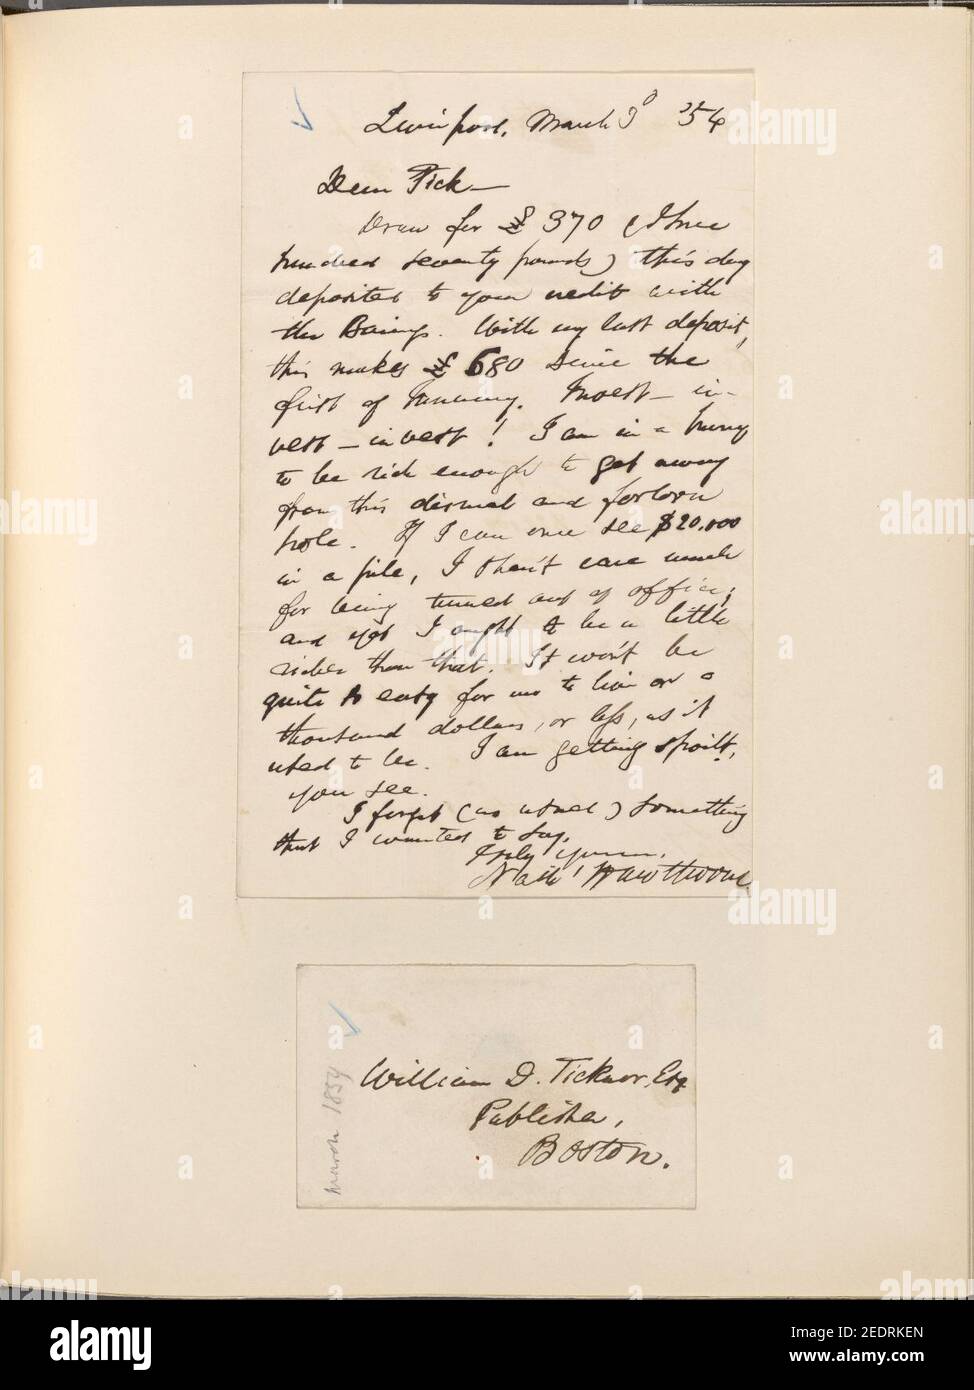 Liverpool, March 3d '54
Dear Tick—
Draw for £370 (three
hundred seventy pounds) this day
deposited to your credit with
the Barings. With my last deposit,
this makes £680 since the
first of January. Invest—in-
vest—invest! I am in a hurry
to be rich enough to get away
from this dismal and forlorn
hole. If I can once see $20,000
in a pile, I shan't care much
for being turned out of office;
and yet I ought to be a little
richer than that. It won't be
quite so easy for me to live on a
thousand dollars, or less, as it
used to be. I am getting spoilt,
you see.
I forget (as usual) something
that I wanted to say.
Truly yours,
Nath' Hawthorne
William D. Ticknor, Esq
Publisher,
Boston.
March 1854
alamy
Image ID: 2EDRKEN
www.alamy.com